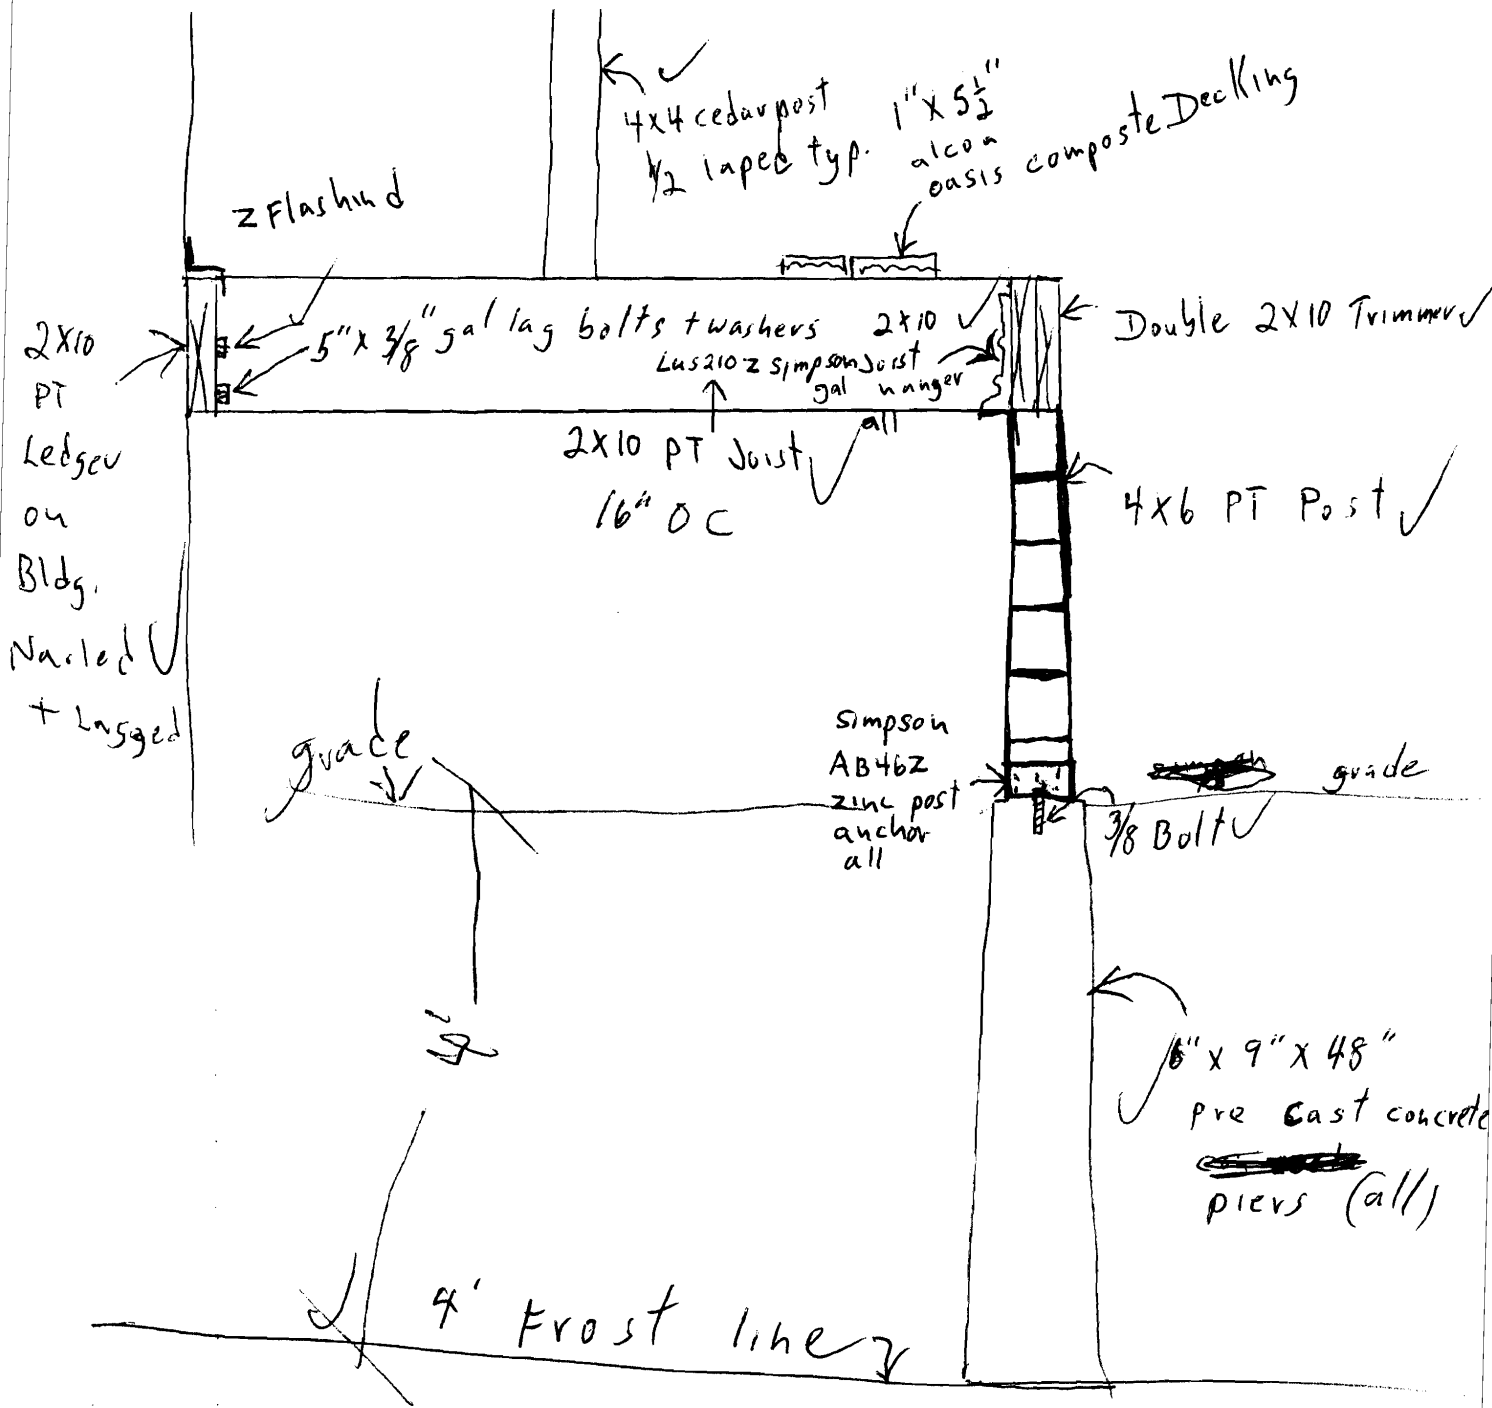 4x4 cedar post
1/2 laped typ.
1" x 5 1/2"
alcoa
oasis composte Decking
z Flashind
2x10
PT
Ledger
on
Bldg.
Nailed
+ Lagged
5" x 3/8" gal lag bolts + washers
2x10
Lus210z simpson Joist
gal hanger
all
Double 2x10 Trimmer
2x10 PT Joist
16" OC
4x6 PT Post
grade
simpson
AB46Z
zinc post
anchor
all
grade
3/8 Bolt
4'
6" x 9" x 48"
pre cast concrete
piers (all)
4' Frost line